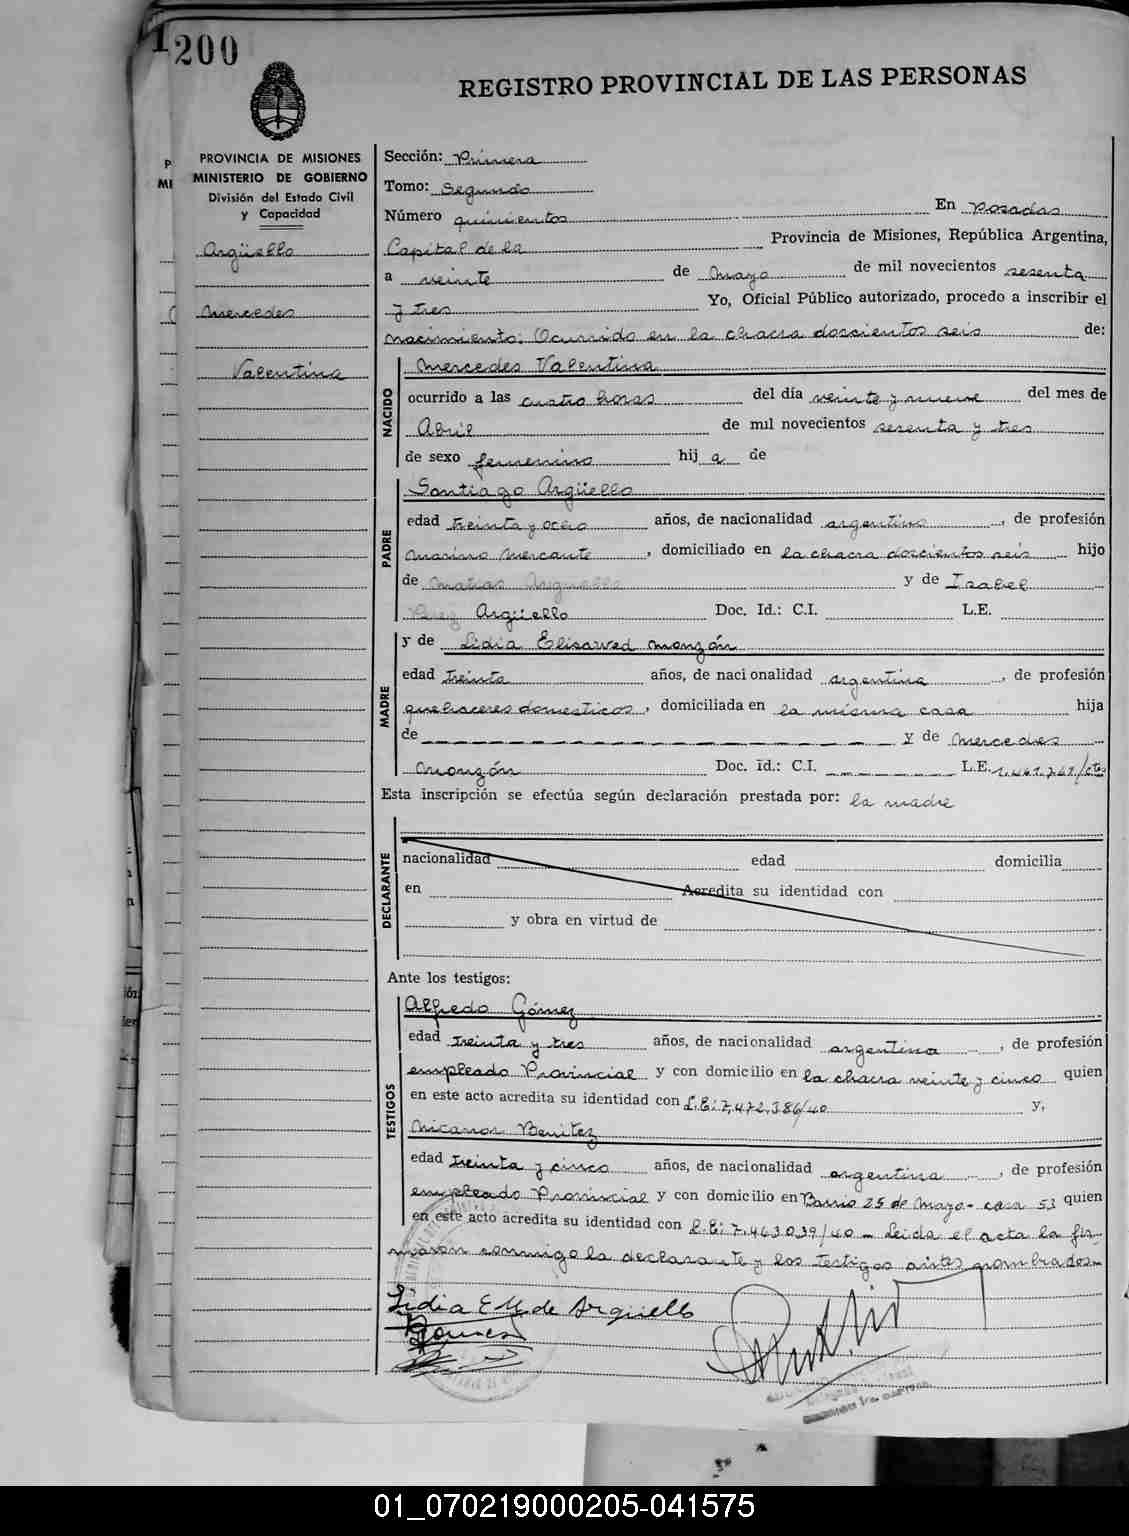 200
REGISTRO PROVINCIAL DE LAS PERSONAS
PROVINCIA DE MISIONES
MINISTERIO DE GOBIERNO
División del Estado Civil
y Capacidad
Argüello
Mercedes
Valentina
Sección: Primera
Tomo: Segundo
Número quinientos En Posadas
Capital de la Provincia de Misiones, República Argentina,
a veinte de Mayo de mil novecientos sesenta
y tres Yo, Oficial Público autorizado, procedo a inscribir el
nacimiento: Ocurrido en la chacra doscientos seis de:
NACIDO
Mercedes Valentina
ocurrido a las cuatro horas del día veinte y nueve del mes de
Abril de mil novecientos sesenta y tres
de sexo femenino hij a de
PADRE
Santiago Argüello
edad treinta y ocho años, de nacionalidad argentino, de profesión
marino mercante, domiciliado en la chacra doscientos seis hijo
de Matias Arguello y de Isabel
Perez Argüello Doc. Id.: C.I. L.E.
MADRE
y de Lidia Elisarved Monzón
edad treinta años, de nacionalidad argentina, de profesión
quehaceres domesticos, domiciliada en la misma casa hija
de y de Mercedes
Monzón Doc. Id.: C.I. L.E.
Esta inscripción se efectúa según declaración prestada por: la madre
DECLARANTE
nacionalidad edad domicilia
en Acredita su identidad con
y obra en virtud de
Ante los testigos:
TESTIGOS
Alfredo Gómez
edad treinta y tres años, de nacionalidad argentina, de profesión
empleado Provincial y con domicilio en la chacra veinte y cinco quien
en este acto acredita su identidad con L.E: 7.472.386/40 y,
Nicanor Benitez
edad treinta y cinco años, de nacionalidad argentina, de profesión
empleado Provincial y con domicilio en Barrio 25 de Mayo - casa 53 quien
en este acto acredita su identidad con L.E: 7.463039/40 - Leida el acta la fir-
maron conmigo la declarante y los testigos antes nombrados-
Lidia E M de Arguello
01_070219000205-041575